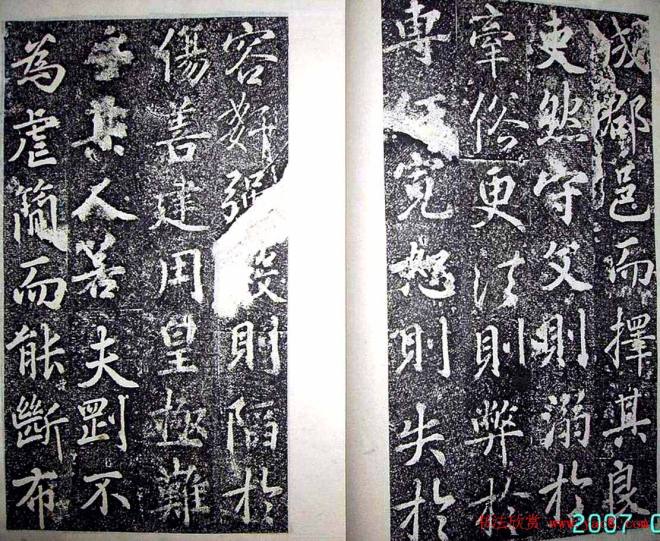 成都邑而擇其良
吏然守文則溺於
牽俗更法則弊於
專任寬恕則失於
容姧強則陷於
傷善建用皇極難
乎其人若夫剛不
為虐簡而能斷布
书法欣赏
2007-0